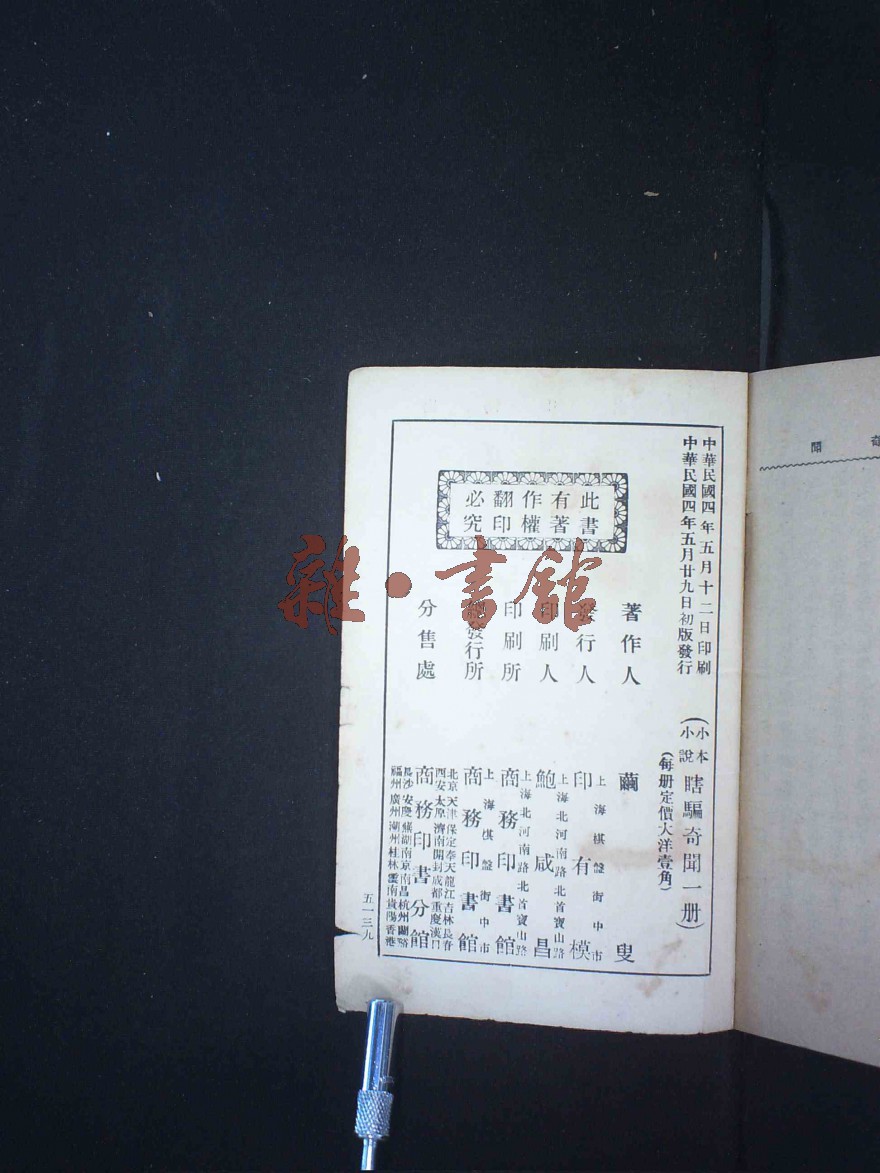 中華民國四年五月十二日印刷
中華民國四年五月廿九日初版發行
(小本小說 瞎騙奇聞一册)
(每册定價大洋壹角)
此書有著作權翻印必究
著作人 繭叟
發行人 印有模
上海棋盤街中市
印刷人 鮑咸昌
上海北河南路北首寶山路
印刷所 商務印書館
上海北河南路北首寶山路
總發行所 商務印書館
上海棋盤街中市
分售處 商務印書分館
北京天津保定奉天龍江吉林長春
西安太原濟南開封成都重慶漢口
長沙安慶蕪湖南京南昌杭州蘭谿
福州廣州潮州桂林雲南貴陽香港
五一三九
奇聞
雜·書館